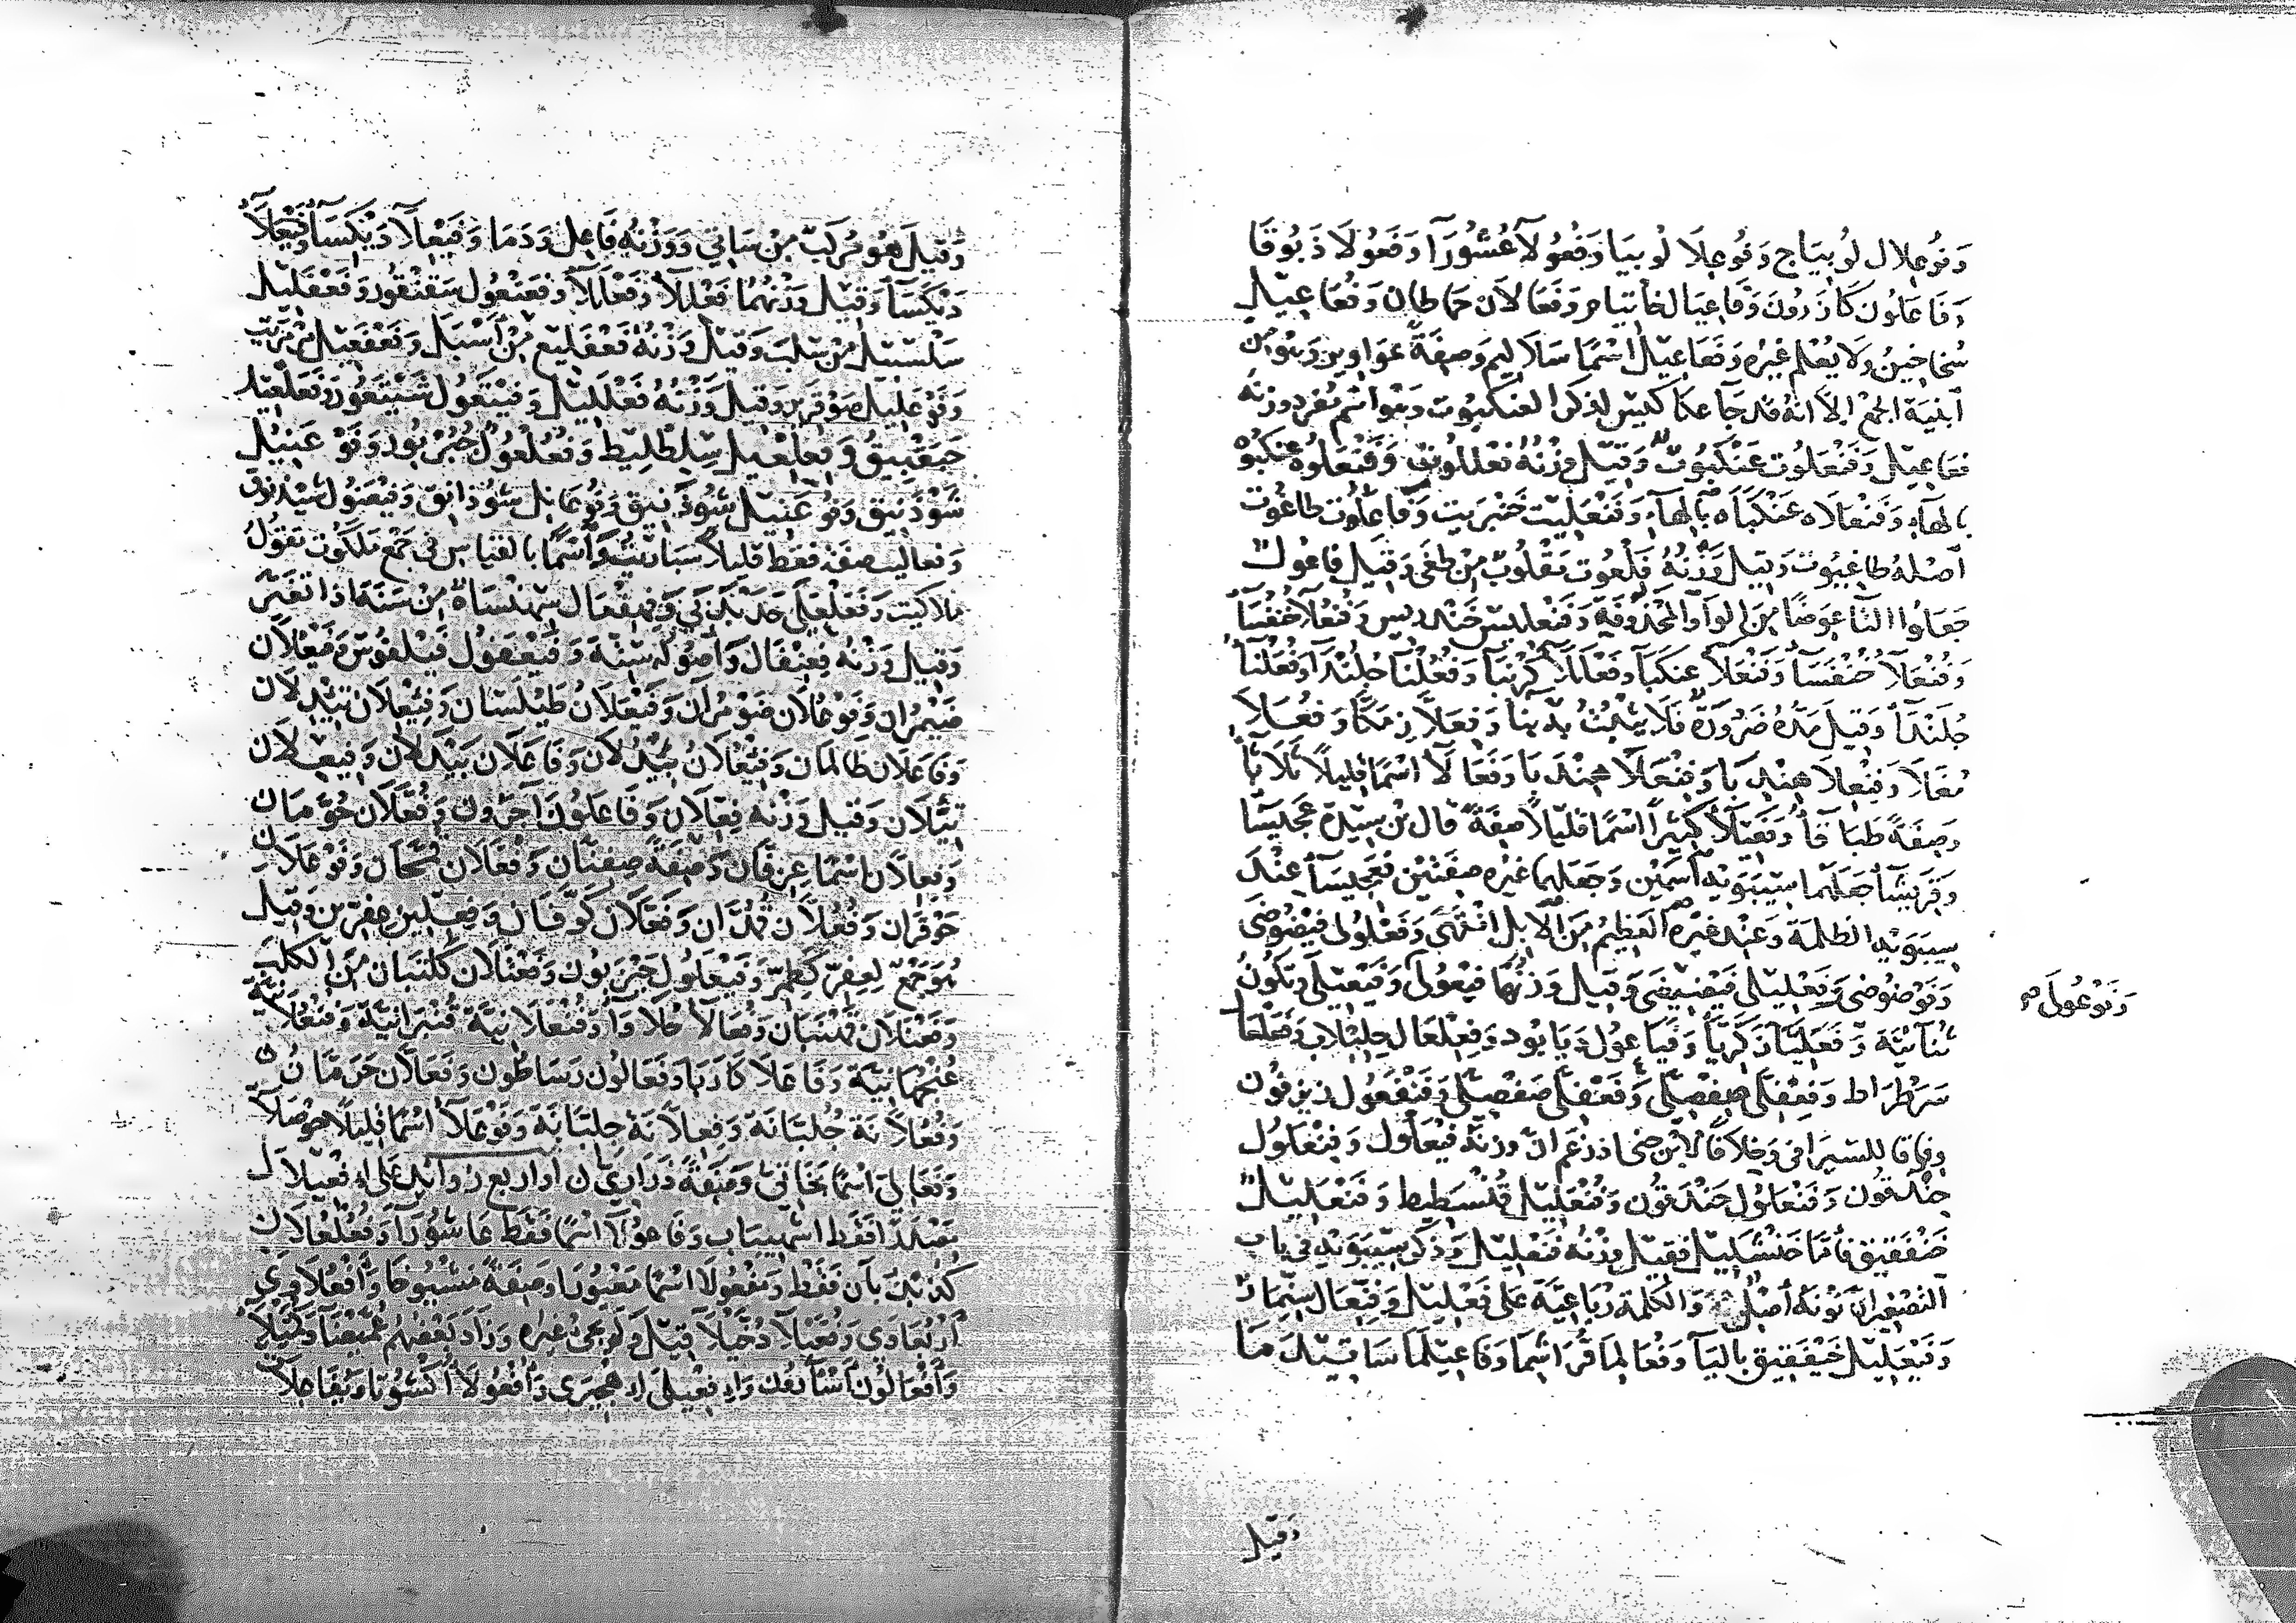 وَفُوعِلال لُوبِيَاج وَفُوعِلَا لُوبِيَا وَفُعُولَآ عُشُورَآ وَفَعُولَا ذَبُوقَا
وَفَاعَلُون كَاذَرُونَ وَفَاعِيَال خَاتِيَام وَفَعَالَان حَمَاطان وَفُعَاعِيل
سُخَاخِينُ وَلَا يُعْلم غيْره وَفَعَاعِيْل اسْمًا سَلَاليم وَصِفَةً عَوَاوِير وَهُوَ مِن
أبنية الجمْع إلَّا أنّهُ قد جَآ عكَاكبيس لذكر العنكبُوت وَهو اسْم مُفرد وَزنه
فعَاعِيل وَفَنْعَلُوت عَنْكَبُوت وَقِيْل وَزْنُهُ فعْللُوت وَفَنْعَلُوه عنكبُوه
بالهَآءِ وَفَنْعَلَاه عَنْكَبَاه بالهَآءِ وَفَنْعَلِيت خَنْبَرِيت وَفَاعَلُوت طَاغُوت
أصْلهُ طاغيُوت وَقيل وَزْنُهُ فَلَعُوت مَقْلُوبٌ مِنْ طغَى وَقِيَل فاعُول
جَعَلُوا التَّا عِوَضًا مِنَ الوَاو المَحْذُوفَة وَفَنْعَلِيس خَندَريس وَفُنْعُلَآ خُنْفُسَآ
وَفُنْعَلَآ خُنْفَسَآ وَفَنْعَلَآ عَنكَبَآ وَفَعْلَلَآ كَرْنبَآ وَفُعُلْنَا جُلُنْدَا وَفُعَلْنَآ
جُلَنْدَآ وَقِيلَ مَدُّهُ ضَرُورَةً فَلَا يُثْبتُ بِهِ بِنَا وَفِعَلَّا زِمَكَّا وَفُعَالَا
ثغَالَا وَفِنْعِلَا هِنْدِبَا وَفِنْعَلَا هِنْدَبَا وَفَعَالَآ اسْمًا قليلًا ثَلَاثآ
وَصِفَةً طَبَاقآ وَفَعِيلَآ كَثِيرًا اسْمًا قلِيلًا صِفَة قال بْن سِيدَه عَجِيسَا
وَقَرِيثَآ جَعَلَهما سِيبَوَيْه اسْمَيْن وَجَعَلهمَا غيْرُه صِفَتيْن فعَجِيسَآ عِنْدَ
سِيبَوَيْهِ الظلمَة وَعِنْدَ غيْرِه العَظِيْم مِنَ الإبل انتهَى وَفَعْلُولى فَيْضُوضَى
وَفَوْضُوضى وَفَعْلِيلَى فَيْضِيْضَى وَقِيل وَزنُهُما فَيْعُولَى وَفَيْعِيلَى وَتكُونُ
وَفَوْعُولَى صح
ثُنآئيَّة وَفَعَلِيَّآ زَكَرِيَّآ وَفَيَاعُول دَيَابُود وَفِعِلْعَال حِلِبْلَاب وَفَعَلْعَال
سَرَطْرَاط وَفِعِفْلَى صِفِصْلى وَفَعَفْلَى صَفَصْلى وَفَنْفَعُول زنزفُون
وِفَاقًا للسّيرَافي وَخِلَافًا لابْن جني اذ زَعَم انّ وزنه فيْعَلُول وَفِنْعَلُول
حِنْدَقُون وَفَنْعَلُول حَنْدَقُون وَفُنْعَلِيل قُنْسَطِيط وَفَنْعَلِيل
خَنْفَقِيق فأمَّا خَنْشَلِيل فقِيْل وزْنُه فَنْعَلِيل وَذكرَ سِيبَوَيْه في بَاب
التصْغِير انّ نونَهُ أصْلِيَّة وَالكلمَة رُبَاعِيَّة عَلى فَعْلَلِيل وَفِنِعَّال سِنِمَّار
وَفَيْعَلِيل خَيْفَقِيق باليَآ وَفُعَالِما قرَاسَيما وَفَاعِيلَما سَاتِيدَمَا
وَقيل
وَقِيلَ هُوَ مُركَب مِنْ سَاتي وَوَزْنهُ فَاعِل وَدَمَا وَفَيْعِلَآ دَيْكِسَآ وَفِيَعْلَآ
دِيَكْسَآ وَقِيْل وَزْنُهُمَا فَعْلِلَآ وَفِعَلْلَآ وَفَعَنْعُول سَقَنْقُور وَفَعْفَلِيل
سَلْسَبِيل مِنْ سَلَب وَقِيْل وَزْنُهُ فَعْفَلِيع مِنْ أسْبَل وَفَعْفَعِيل مَرْمَرِيت
وَفَوْعَلِيل وَقِيل وَزْنُهُ فَعْلَلِيْل وَفَيْتَعُول شَيْتَعُور وَفَعَلْعِيل
حَبَقْبِيق وَفِعِلْعِيل سِلِطْلِيط وَفُعُلْعُول حُبُرْبُور وَفَوْعَنِيل
شَوْذَنِيق وَفُوعَنِيل شُوذَنِيق وَفُوعَانِل شُوذَانِق وَفَيْعَنُول شَيْذَنوق
وَفعَاليت صفة فقط قليلًا سُبَاريت وَاسْمًا بالقيَاس في جَمْع مَلكُوت تقوُل
مَلاكيت وَفَعَلْعَلَى حَدَبْدَبَى وَفِهنْعَال سِهنْسَاة مِنْ سَنهَ اذا تغَيّر
وَقيل وَزْنه فِعِنْفَال وَأصُوله سَنَة وَفَيْعَفُول فَيْلَفُوس وَفَيْعُلَان
ضَيْمُرَان وَفَوْعُلَان ضَوْمُرَان وَفَيْعَلَان طَيْلَسَان وَفِيْعِلَان بِيْدِلَان
وَفَاعَلَان ظَالَمان وَفَيْعُلَان بَيْدُلَان وَفَاعَلَان بَيْدَلَان وَفِيْعَلَان
تِئلَان وَقيل وَزْنه فِعِّلَان وَفَاعَلُون آجَرُون وَفُعَّلَان حُوَّمَان
وَفِعِلَّان اسْمًا عِرِفَّان وَصِفَة صِفِتَّان وَفُعَّلَان قُمَّحَان وَفَوْعَلَان
حَوْفَزَان وَفُعُلَّان قُمُدَّان وَفَعَّلَان كَوَّفَان وَفِعِلِّين عِفِرِّين وَقِيْل
هُوَ جَمْع لِعِفِرّ كَطِمِرّ وَفَيْعَلُول خَيْزَبُون وَفَعْتَلَان كَلْتَبَان مِنَ الكلَب
وَفَعْنَلَان قَهْنَبَان وَفُعَالَآ حُلَاوَآ وَفُنْعَلَانِيَّة قُنْبَرَانِيَّة وَفُنْعُلَانيَّة
عُنْجُهَانِيَّة وَفَاعَلَا كَارَبَا وَفَعَالُون رَسَاطُون وَفَعَلَّان حَرَمَّان
وَفُعُلَّانَة جُلُبَّانَة وَفِعِلَّانَة جِلِبَّانَة وَفَوْعَلَآ اسْمًا قليلًا حَوْصَلَآ
وَفَعَاليّ اسْمًا بَخَاتيّ وَصِفَةً دَرَارِيّ أوْ أربع زَوَائد عَلى افْعِيلَال
مَصْدَرًا فَقط اشهِيبَاب وَفَاعُولَآ اسْمًا فَقَط عَاشُورَآ وَفُعُلْعُلَان
كُذُبْذُبَان فَقَط وَمَفْعُولَا اسْمًا مَعْيُورَا وَصِفَة مَشْيُوخَا وَأُفْعُلَاوَى
أُرْبُعَاوَى وَفُعَّيْلَآ دُخَّيْلَآ قِيل وَلم يَجئ غيره وَزَادَ بَعْضُهم غُمَّيْضَا وَكُمَّيْلَا
وَأفْعَالُون أسْآرُون وَإفْعِيلَى إهْجِيرَى وَأفْعُولَا أكشُوثا وَيُفَاعِلَآ